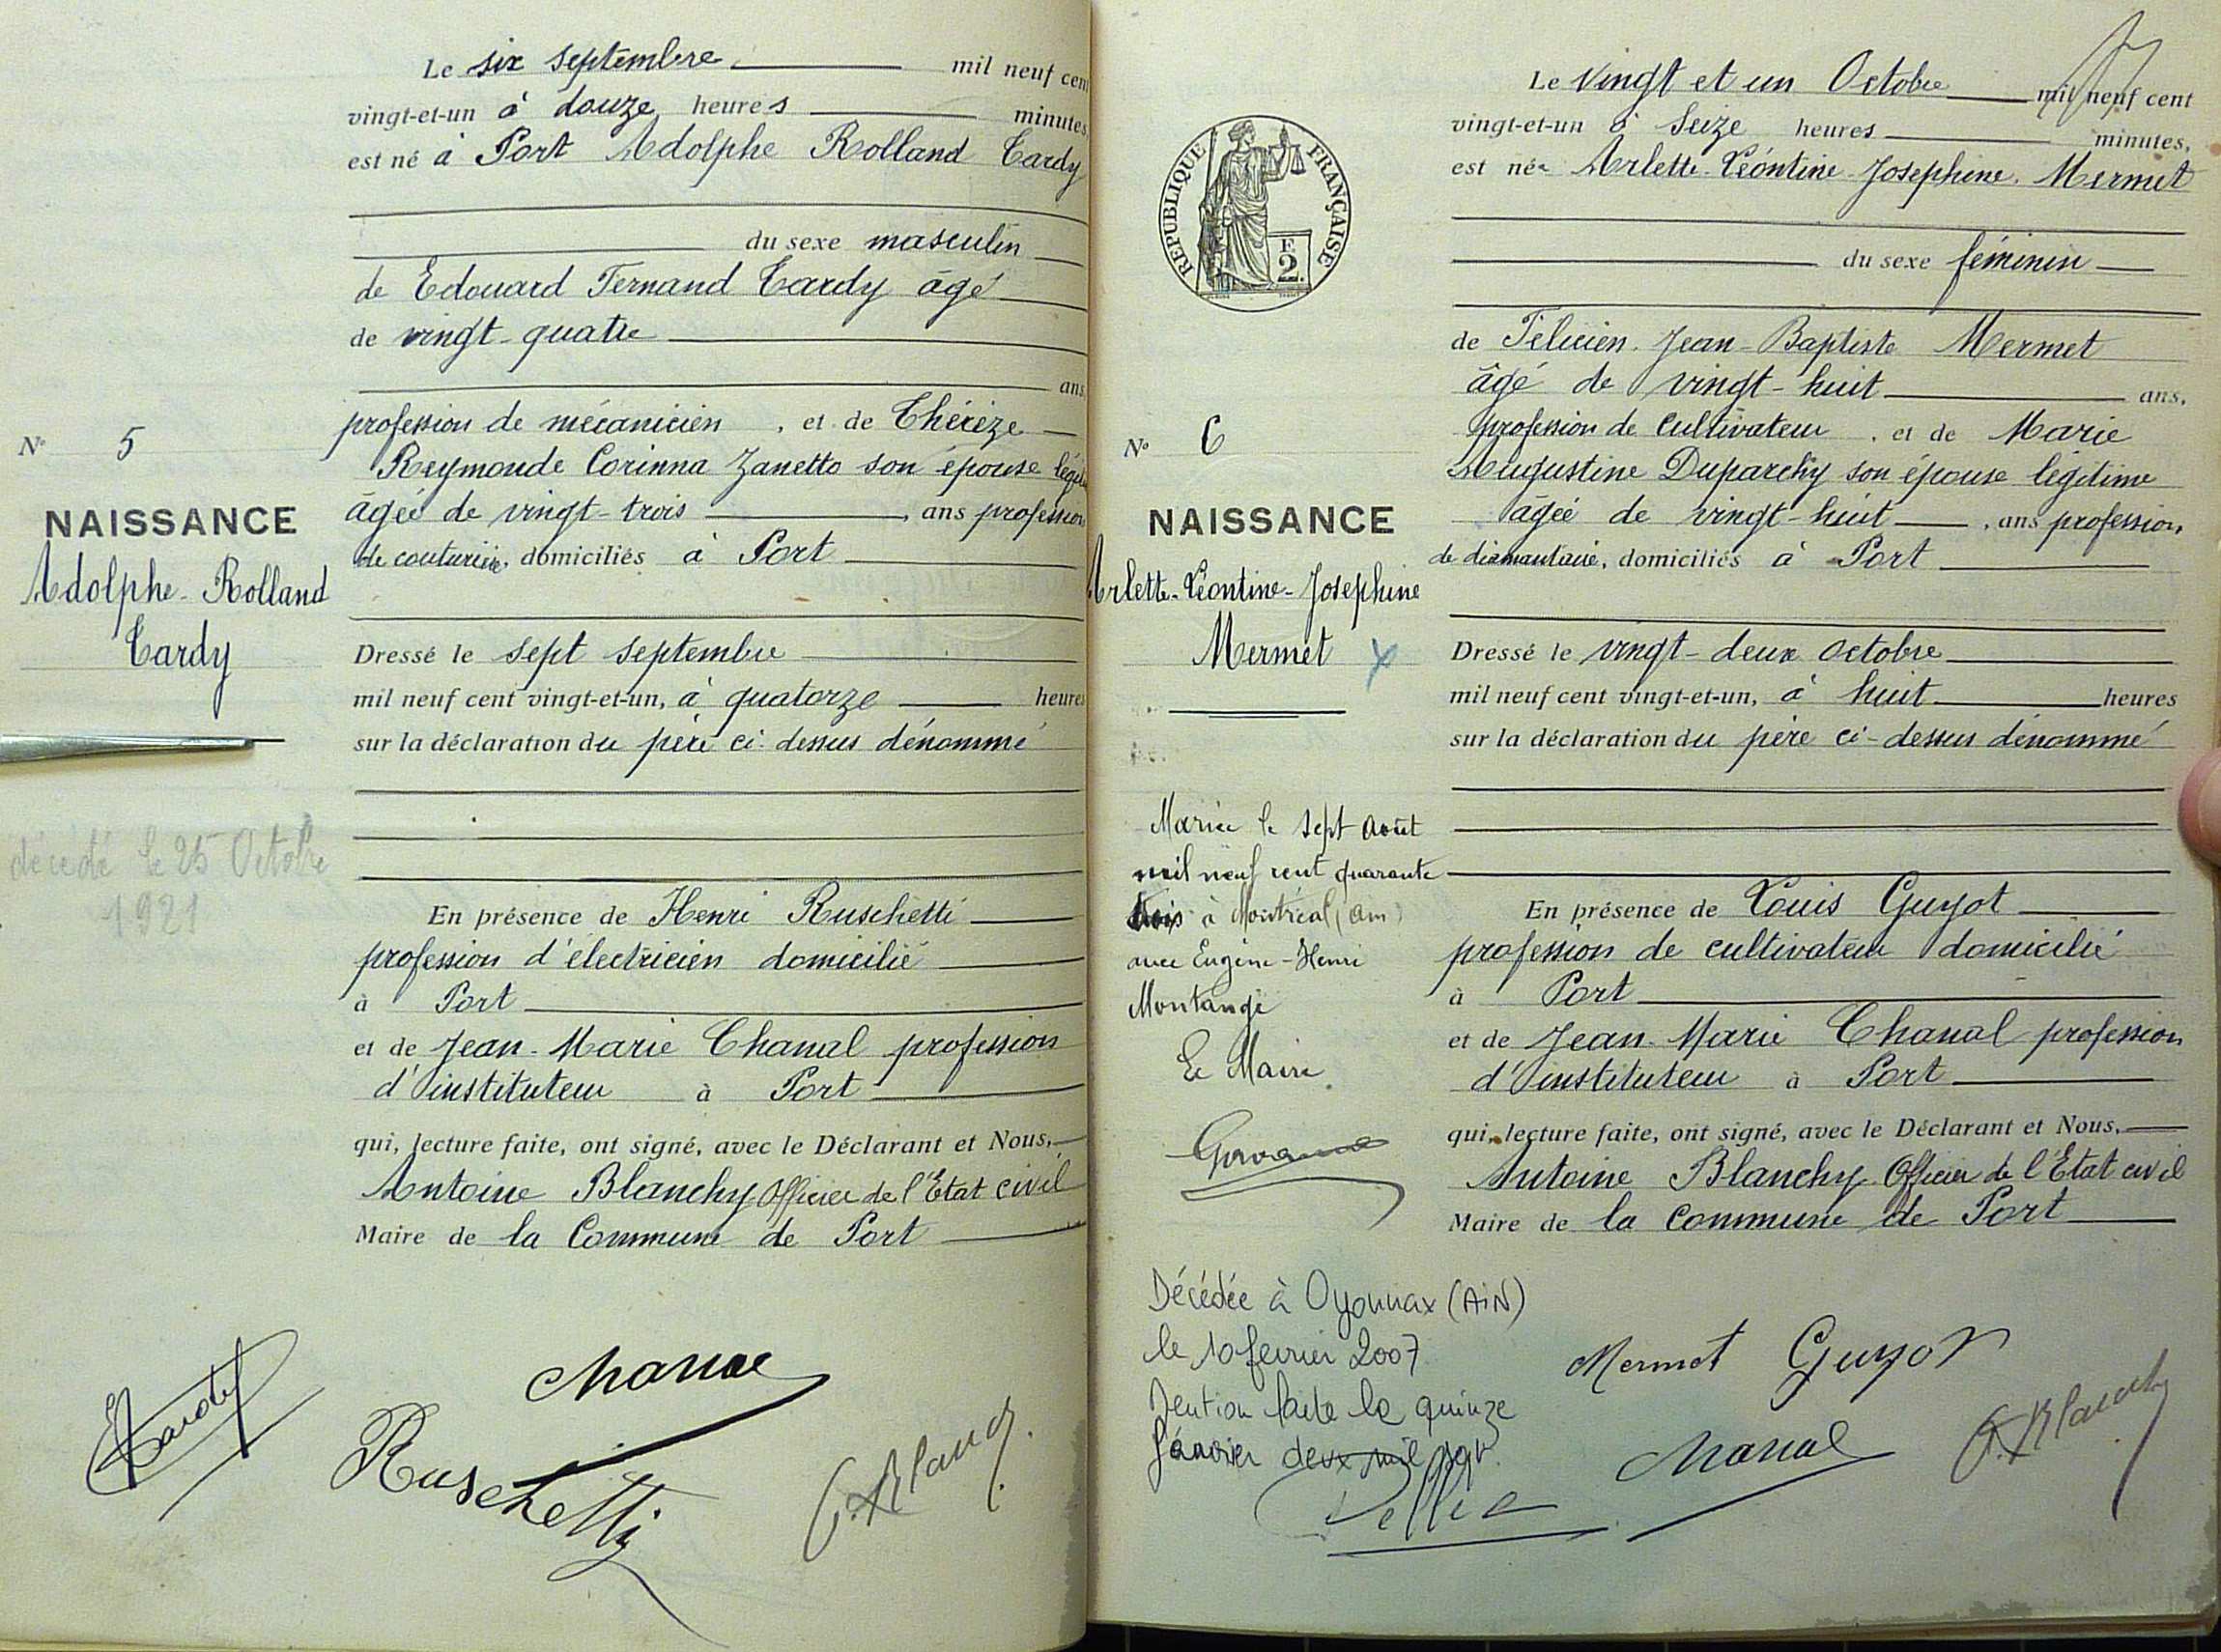 Le six septembre mil neuf cen
vingt-et-un à douze heures minutes
est né à Port Adolphe Rolland Tardy
du sexe masculin
de Edouard Fernand Tardy âgé
de vingt-quatre
ans
profession de mécanicien, et de Thérèze
Reymonde Corinna Zanetto son épouse
âgée de vingt-trois, ans profession
de couturière, domiciliés à Port
Dressé le sept septembre
mil neuf cent vingt-et-un, à quatorze heures
sur la déclaration du père ci-dessus dénommé
En présence de Henri Ruschetti
profession d'électricien domicilié
à Port
et de Jean-Marie Chanal profession
d'instituteur à Port
qui, lecture faite, ont signé, avec le Déclarant et Nous,
Antoine Blanchy Officier de l'Etat civil
Maire de la Commune de Port
N° 5
NAISSANCE
Adolphe-Rolland
Tardy
décédé le 25 Octobre
1921
Tardy
Chanal
Ruschetti
REPUBLIQUE FRANÇAISE
F.
2.
N° 6
NAISSANCE
Arlette-Léontine-Josephine
Mermet
Mariée le sept Août
mil neuf cent quarante
trois à Montréal (Ain)
avec Eugène-Henri
Montange
Le Maire
Décédée à Oyonnax (AiN)
le 10 fevrier 2007
Mention faite le quinze
deux mil sept.
Le Vingt et un Octobre mil neuf cent
vingt-et-un à Seize heures minutes,
est née Arlette-Léontine-Josephine. Mermet
du sexe féminin
de Félicien Jean-Baptiste Mermet
âgé de vingt-huit ans,
profession de Cultivateur, et de Marie
Augustine Duparchy son épouse légitime
âgée de vingt-huit, ans profession,
de diamantaire, domiciliés à Port
Dressé le vingt-deux octobre
mil neuf cent vingt-et-un, à huit heures
sur la déclaration du père ci-dessus dénommé
En présence de Louis Guyot
profession de cultivateur domicilié
à Port
et de Jean-Marie Chanal profession
d'instituteur à Port
qui, lecture faite, ont signé, avec le Déclarant et Nous,
Antoine Blanchy Officier de l'Etat civil
Maire de la Commune de Port
Mermet Guyot
Chanal